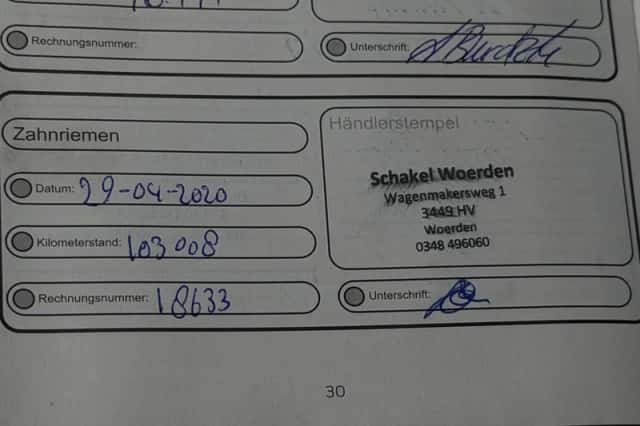 Rechnungsnummer:
Unterschrift:
Zahnriemen
Händlerstempel
Schakel Woerden
Wagenmakersweg 1
3449 HV
Woerden
0348 496060
Datum: 29-04-2020
Kilometerstand: 103 008
Rechnungsnummer: 18633
Unterschrift:
30